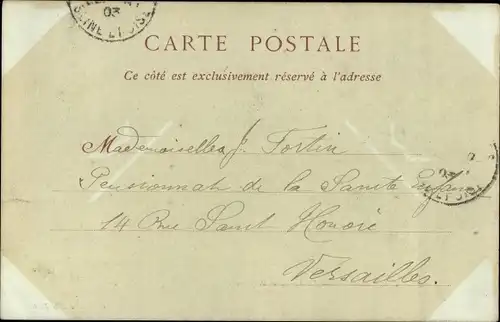 03
SEINE ET OISE
CARTE POSTALE
Ce côté est exclusivement réservé à l'adresse
Mademoiselles J. Fortin
Pensionnat de la Sainte Enfance
14 Rue Saint Honoré
Versailles.
ET OISE